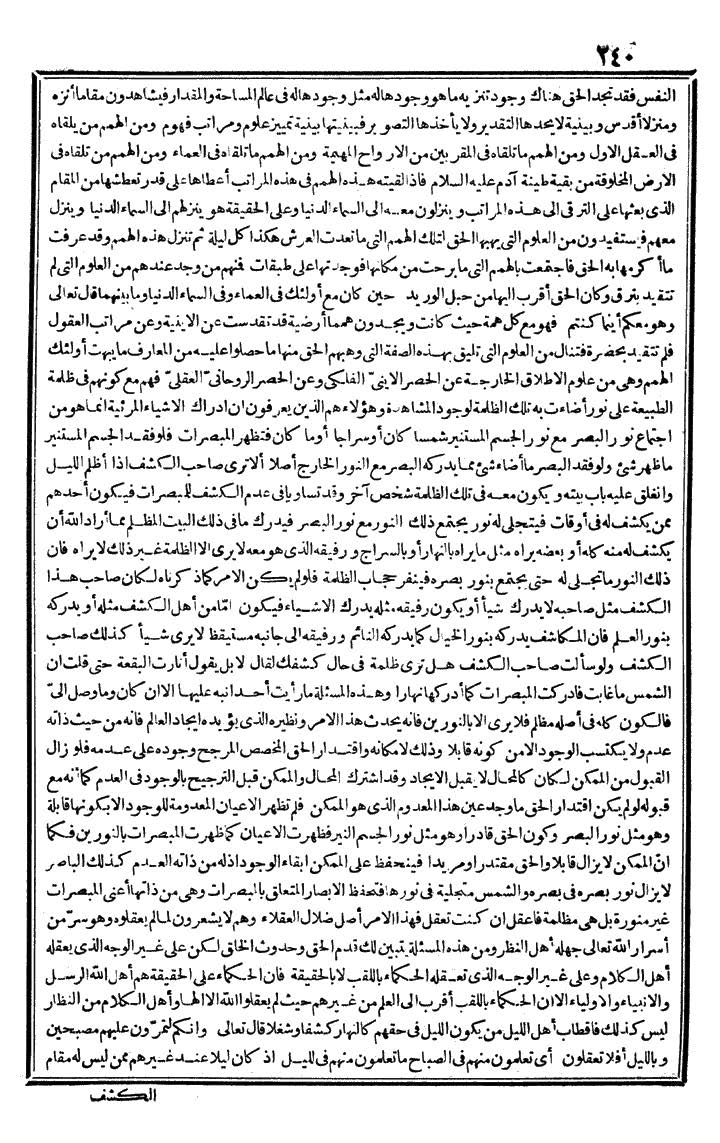 ٣٤٠
النفس فقد تجد الحق هناك وجود تنزيه ما هو وجودها له مثل وجودها له فى عالم المساحة والمقدار فيشاهدون مقاما أنزه
ومنزلا أقدس وبينية لا يحدها التقدير ولا يأخذها التصوير فبينيتها بينية تمييز علوم ومراتب فهوم ومن الهمم من يلقاه
فى العقل الاول ومن الهمم ما تلقاه فى المقربين من الارواح المهيمة ومن الهمم ما تلقاه فى العماء ومن الهمم من تلقاه فى
الارض المخلوقة من بقية طينة آدم عليه السلام فاذا لقيته هذه الهمم فى هذه المراتب أعطاها على قدر تعطشها من المقام
الذى بعثها على الترقى الى هذه المراتب وينزلون معه الى السماء الدنيا وعلى الحقيقة هو ينزلهم الى السماء الدنيا وينزل
معهم فيستفيدون من العلوم التى يهبها الحق لتلك الهمم التى ما تعدت العرش هكذا كل ليلة ثم تنزل هذه الهمم وقد عرفت
ما أكرمها به الحق فاجتمعت بالهمم التى ما برحت من مكانها فوجدتها على طبقات فمنهم من وجد عندهم من العلوم التى لم
تتقيد بترق وكان الحق أقرب اليها من حبل الوريد حين كان مع أولئك فى العماء وفى السماء الدنيا وما بينهما قال تعالى
وهو معكم أينما كنتم فهو مع كل همة حيث كانت ويجدون همما أرضية قد تقدست عن الاينية وعن مراتب العقول
فلم تتقيد بحضرة فتنال من العلوم التى تليق بهذه الصفة التى وهبهم الحق منها ما حصلوا عليه من المعارف ما يبهت أولئك
الهمم وهى من علوم الاطلاق الخارجة عن الحصر الاينىّ الفلكى وعن الحصر الروحانىّ العقلىّ فهم مع كونهم فى ظلمة
الطبيعة على نور أضاءت به تلك الظلمة لوجود المشاهدة وهؤلاء هم الذين يعرفون ان ادراك الاشياء المرئية انما هو من
اجتماع نور البصر مع نور الجسم المستنير شمسا كان أو سراجا أو ما كان فتظهر المبصرات فلو فقد الجسم المستنير
ما ظهر شئ ولو فقد البصر ما أضاء شئ مما يدركه البصر مع النور الخارج أصلا ألا ترى صاحب الكشف اذا أظلم الليل
وانغلق عليه باب بيته ويكون معه فى تلك الظلمة شخص آخر وقد تساويا فى عدم الكشف للمبصرات فيكون أحدهم
ممن يكشف له فى أوقات فيتجلى له نور يجتمع ذلك النور مع نور البصر فيدرك ما فى ذلك البيت المظلم مما أراد الله أن
يكشف له منه كله أو بعضه يراه مثل ما يراه بالنهار أو بالسراج ورفيقه الذى هو معه لا يرى الا الظلمة غير ذلك لا يراه فان
ذلك النور ما تجلى له حتى يجتمع بنور بصره فينفر حجاب الظلمة فلو لم يكن الامر كما ذكرناه لكان صاحب هذا
الكشف مثل صاحبه لا يدرك شيأ أو يكون رفيقه مثله يدرك الاشياء فيكون امّا من أهل الكشف مثله أو يدركه
بنور العلم فان المكاشف يدركه بنور الخيال كما يدركه النائم ورفيقه الى جانبه مستيقظ لا يرى شيأ كذلك صاحب
الكشف ولو سألت صاحب الكشف هل ترى ظلمة فى حال كشفك لقال لا بل يقول أنارت البقعة حتى قلت ان
الشمس ما غابت فادركت المبصرات كما أدركها نهارا وهذه المسئلة ما رأيت أحدا نبه عليها الا ان كان وما وصل الىّ
فالكون كله فى أصله مظلم فلا يرى الا بالنورين فانه يحدث هذا الامر ونظيره الذى يؤيده ايجاد العالم فانه من حيث ذاته
عدم ولا يكتسب الوجود الا من كونه قابلا وذلك لامكانه واقتدار الحق المخصص المرجح وجوده على عدمه فلو زال
القبول من الممكن لكان كالمحال لا يقبل الايجاد وقد اشترك المحال والممكن قبل الترجيح بالوجود فى العدم كما أنه مع
قبوله لو لم يكن اقتدار الحق ما وجد عين هذا المعدوم الذى هو الممكن فلم تظهر الاعيان المعدومة للوجود الا بكونها قابلة
وهو مثل نور البصر وكون الحق قادرا وهو مثل نور الجسم النير فظهرت الاعيان كما ظهرت المبصرات بالنورين فكما
انّ الممكن لا يزال قابلا والحق مقتدرا ومريدا فينحفظ على الممكن ابقاء الوجود اذ له من ذاته العدم كذلك الباصر
لا يزال نور بصره فى بصره والشمس متجلية فى نورها فتحفظ الابصار المتعلق بالمبصرات وهى من ذاتها أعنى المبصرات
غير منورة بل هى مظلمة فاعقل ان كنت تعقل فهذا الامر أصل ضلال العقلاء وهم لا يشعرون لما لم يعقلوه وهو سرّ من
أسرار الله تعالى جهله أهل النظر ومن هذه المسئلة يتبين لك قدم الحق وحدوث الخلق لكن على غير الوجه الذى يعقله
أهل الكلام وعلى غير الوجه الذى تعقله الحكماء باللقب لا بالحقيقة فان الحكماء على الحقيقة هم أهل الله الرسل
والانبياء والاولياء الا ان الحكماء باللقب أقرب الى العلم من غيرهم حيث لم يعقلوا الله الا الها وأهل الكلام من النظار
ليس كذلك فاقطاب أهل الليل من يكون الليل فى حقهم كالنهار كشفا وشغلا قال تعالى وانكم لتمرّون عليهم مصبحين
وبالليل أفلا تعقلون أى تعلمون منهم فى الصباح ما تعلمون منهم فى الليل اذ كان ليلا عند غيرهم ممن ليس له مقام
الكشف